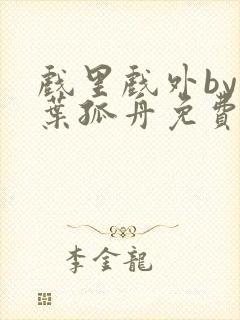 戲里戲外by
葉孤丹免費
李金龍